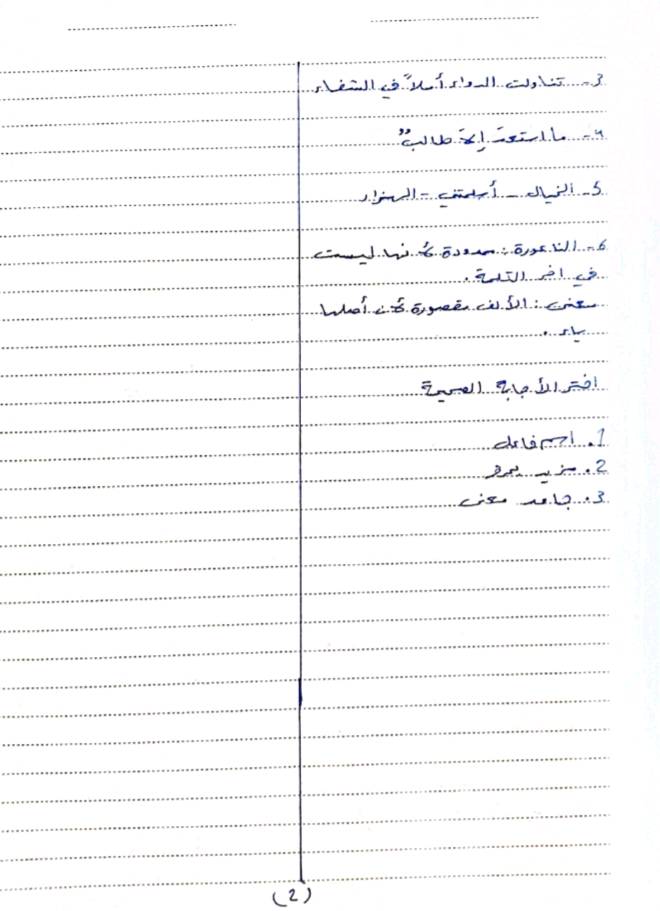 3- تناولت الدواء أملاً في الشفاء
4- ما استعدّ إلا طالبٌ
5- الخيال - أسلمتني -
6- الناعورة : ممدودة لأنها ليست
في اخر الكلمة .
معنى : الألف مقصورة لأن أصلها
ياء .
اختر الأجابة الصحيحة
1. اسم فاعل
2. مزيد بحرف
3. جامد معنى
(2)